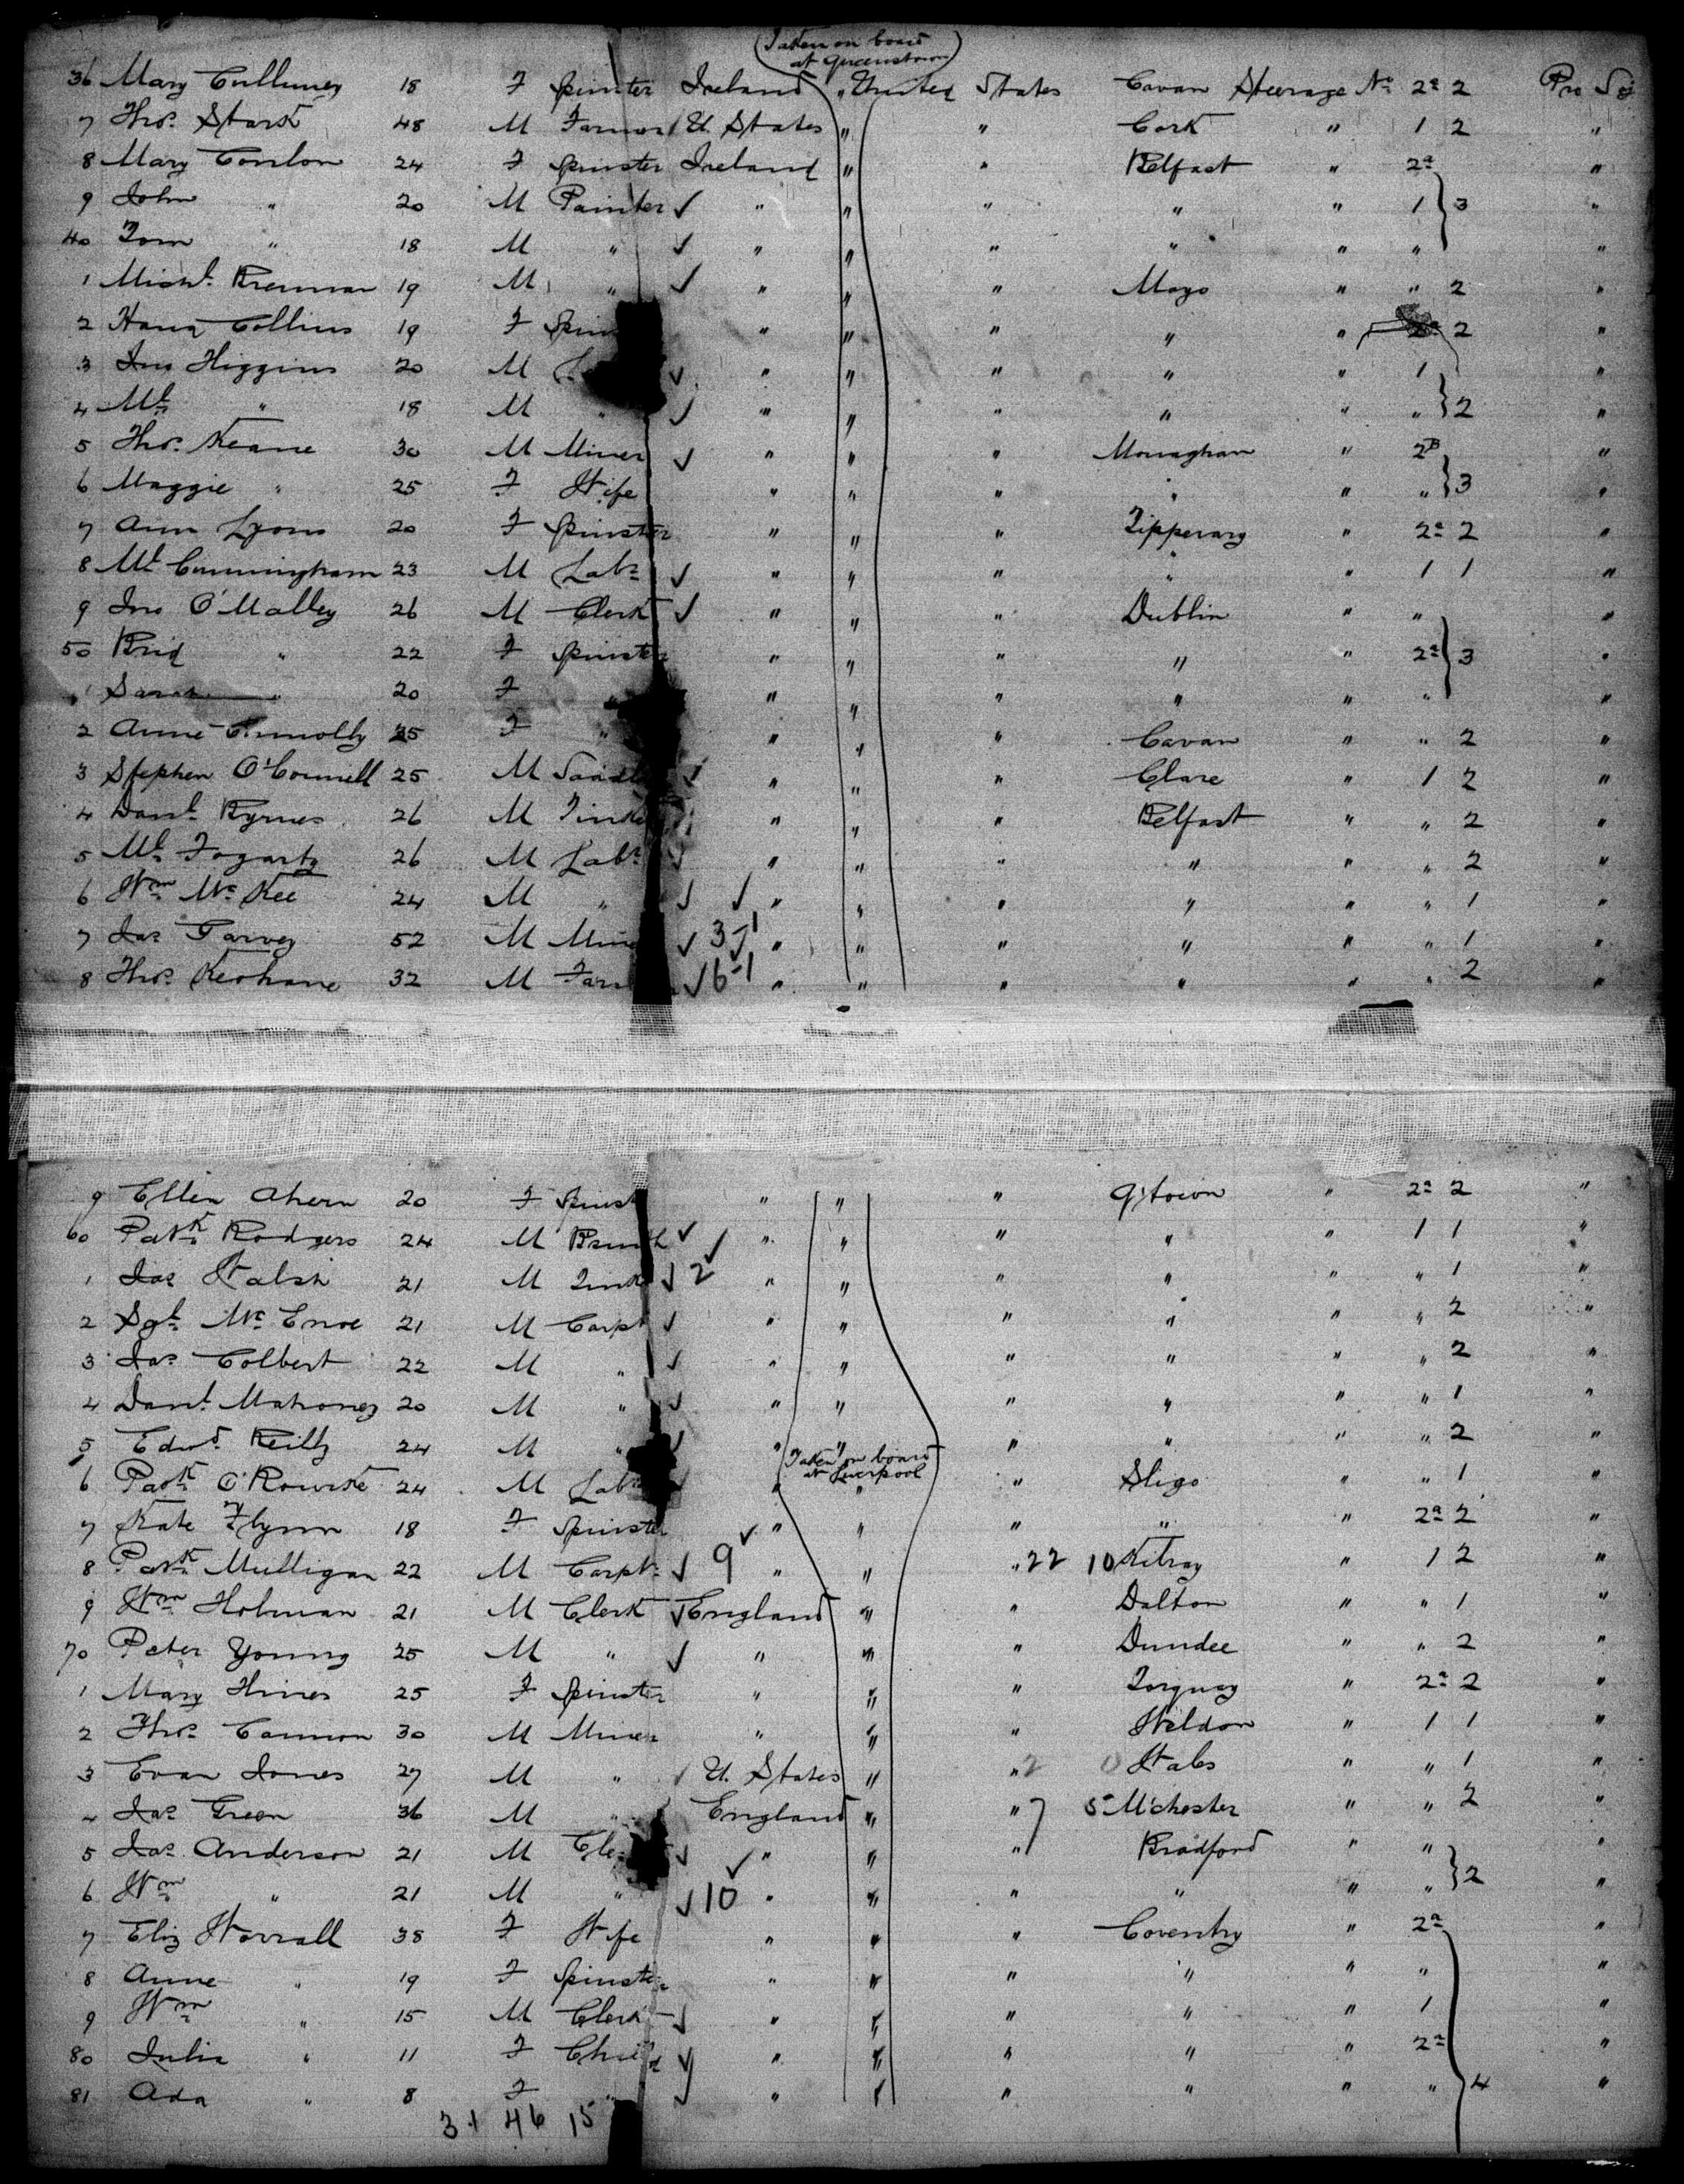 (Taken on board
at Queenstown)
36 Mary Cullumey 18 F Spinster Ireland " United States Cavan Steerage No 2a 2
7 Thos. Stark 48 M Farmer U. States " " Cork " 1 2 "
8 Mary Conlon 24 F Spinster Ireland " " Belfast " 2a "
9 John " 20 M Painter ✓ " " " " " 1 } 3 "
40 Tom " 18 M " ✓ " " " " " " "
1 Michl. Brennan 19 M " ✓ " " " Mayo " " 2 "
2 Hana Collins 19 F Spin " " " " " 2a 2 "
3 Jno Higgins 20 M L ✓ " " " " " 1 "
4 Ml " 18 M " ✓ " " " " " " } 2 "
5 Thos. Keane 30 M Miner ✓ " " " Monaghan " 2B "
6 Maggie " 25 F Wife " " " " " " } 3 "
7 Ann Lyons 20 F Spinster " " " Tipperary " 2a 2 "
8 Ml Cunningham 23 M Labr ✓ " " " " " 1 1 "
9 Jno O'Malley 26 M Clerk ✓ " " " Dublin " " "
50 Brid " 22 F Spinster " " " " " 2a } 3 "
1 Sarah " 20 F " " " " " " " "
2 Anne Connolly 35 F " " " " Cavan " " 2 "
3 Stephen O'Connell 25 M Saddl ✓ " " " Clare " 1 2 "
4 Danl. Byrnes 26 M Tinke " " " Belfast " " 2 "
5 Ml Fogarty 26 M Labr ✓ " " " " " " 2 "
6 Wm McKee 24 M " ✓ ✓ " " " " " " 1 "
7 Jas Garvey 52 M Mine ✓ 3-1 ✓ " " " " " " 1 "
8 Thos. Keohane 32 M Farm ✓ 6-1 " " " " " " 2 "
9 Ellen Ahern 20 F Spinst " " " Q'town " 2a 2 "
60 Patk Rodgers 24 M Bsmith ✓ " " " " " 1 1 "
1 Jas Walsh 21 M Tink ✓ 2 ✓ " " " " " " 1 "
2 Sgl. McEnroe 21 M Carpt ✓ " " " " " " 2 "
3 Jas Colbert 22 M " ✓ " " " " " " 2 "
4 Danl. Mahoney 20 M " ✓ " " " " " " 1 "
5 Edwd. Reilly 24 M " ✓ " " " " " " 2 "
(Taken on board
at Liverpool)
6 Patk O'Rourke 24 M Labr ✓ " " " Sligo " " 1 "
7 Kate Flynn 18 F Spinster " " " " " 2a 2 "
8 Patk Mulligan 22 M Carptr ✓ 9 ✓ " " " 22 10 Kilray " 1 2 "
9 Wm Holman 21 M Clerk ✓ England " " Dalton " " 1 "
70 Peter Young 25 M " ✓ " " " Dundee " " 2 "
1 Mary Hines 25 F Spinster " " " Torquay " 2a 2 "
2 Thos. Cannon 30 M Miner " " " Weldon " 1 1 "
3 Evan Jones 27 M " ✓ U. States " " 2 0 Wales " " 1 "
4 Jas Green 36 M " England " " 7 5 M'chester " " 2 "
5 Jas Anderson 21 M Cle ✓ " " " Bradford " " "
6 Wm " 21 M " ✓ 10 ✓ " " " " " " } 2 "
7 Eliz Worrall 38 F Wife " " " Coventry " 2a "
8 Anne " 19 F Spinster " " " " " " "
9 Wm " 15 M Clerk ✓ " " " " " 1 "
80 Julia " 11 F Child ✓ " " " " " 2a "
81 Ada " 8 F " ✓ " " " " " " } 4 "
31 46 15